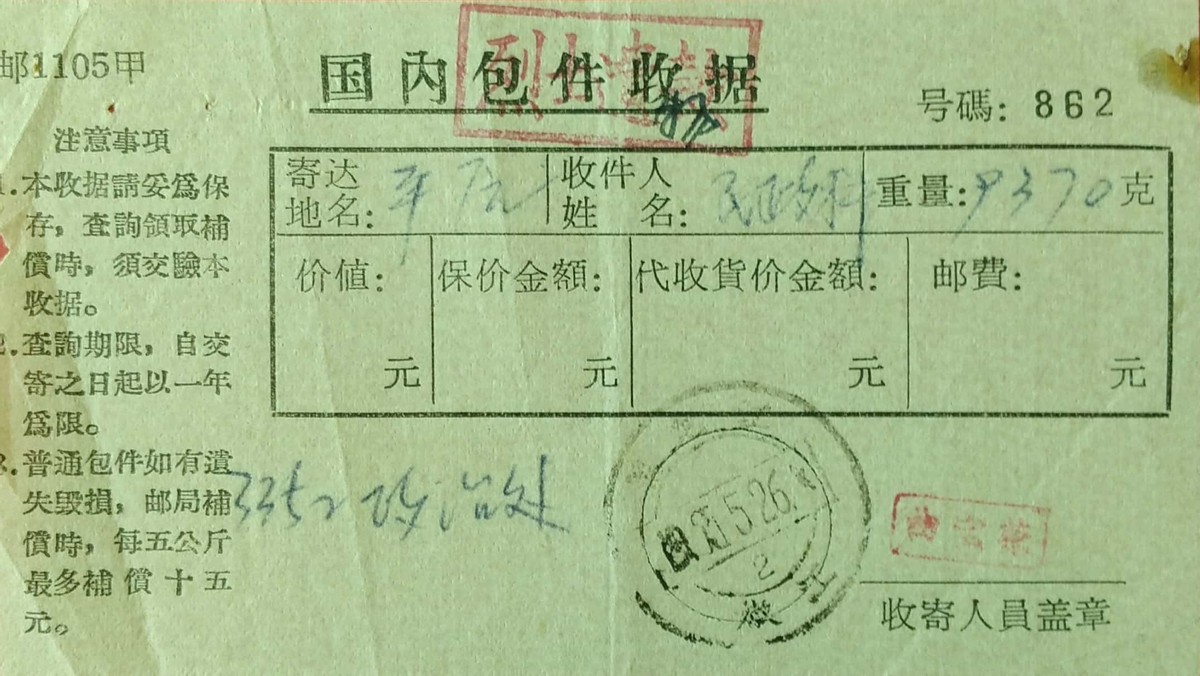 邮1105甲
国内包件收据
号碼: 862
注意事項
1.本收据請妥爲保
存，查詢領取補
償時，須交驗本
收据。
2.查詢期限，自交
寄之日起以一年
爲限。
3.普通包件如有遺
失毀損，邮局補
償時，每五公斤
最多補償十五
元。
寄达地名:
收件人姓名: 民政科
重量: 9370克
价値: 元
保价金額: 元
代收貨价金額: 元
邮費: 元
3352政治处
5.26
2
收寄人員盖章